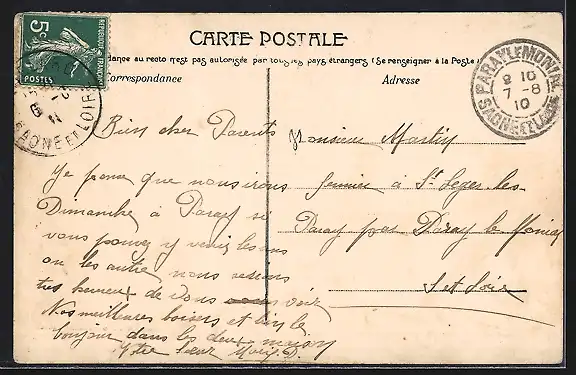 CARTE POSTALE
dance au recto n'est pas autorisée par tous les pays étrangers (Se renseigner à la Poste)
Correspondance
Adresse
5c
REPUBLIQUE FRANÇAISE
POSTES
SAONE ET LOIRE
PARAY LE MONIAL
8 10
7 -8
10
SAONE ET LOIRE
Bien cher Parents
Je pense que nous irons
Dimanche à Paray si
vous pouvez y venir les uns
ou les autre nous serions
tres heureux de vous voir
Nos meilleures baisers et bien le
bonjour dans les deux maison
Votre Sœur
Monsieur Martin
fermier à St Leger-les-
Paray par Paray le Monial
S et Loire